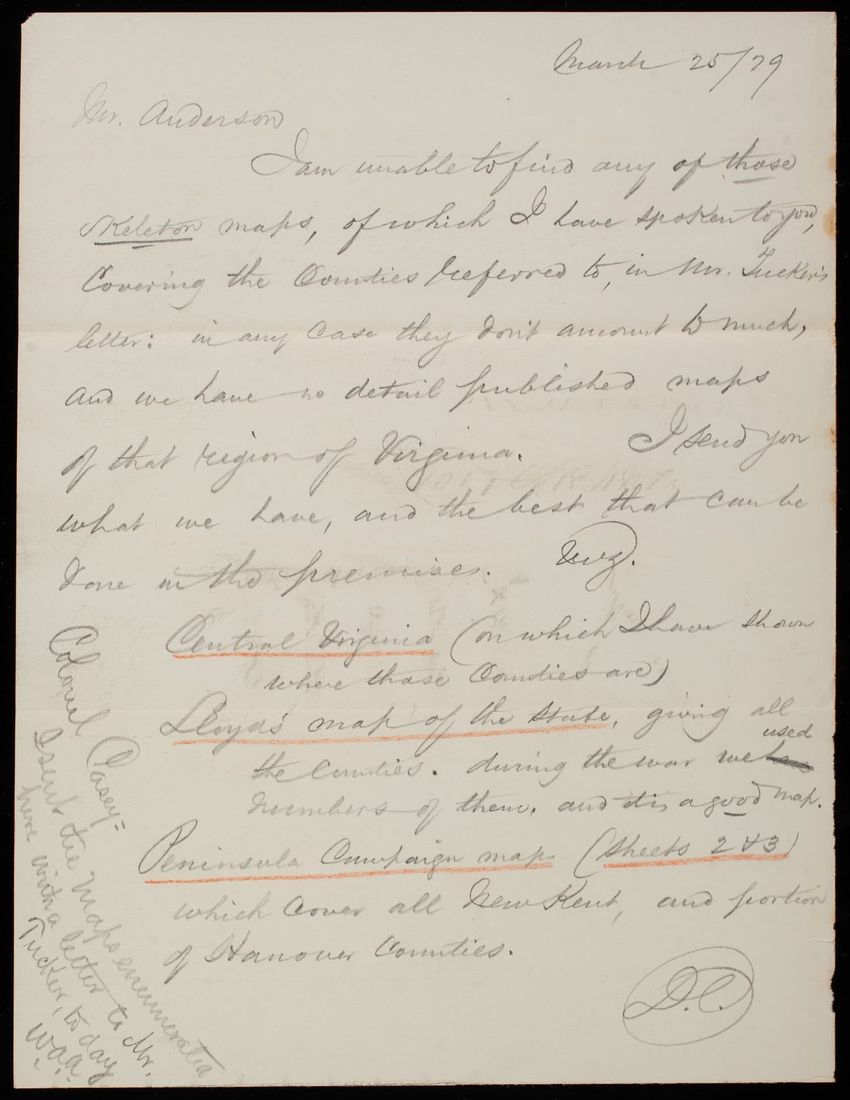 March 25/79
Mr. Anderson
I am unable to find any of those
skeleton maps, of which I have spoken to you,
Covering the Counties referred to, in Mr. Tucker's
letter: in any case they don't amount to much,
and we have no detail published maps
of that region of Virginia. I send you
what we have, and the best that can be
done in the premises. Viz.
Central Virginia (on which I have shown
where those Counties are)
Lloyd's map of the State, giving all
the Counties. during the war we used
numbers of them, and it is a good map.
Peninsula Campaign map (Sheets 2 & 3)
which cover all New Kent, and portion
of Hanover Counties.
D.C.
Colonel Casey =
I sent the maps enumerated
here with a letter to Mr.
Tucker, to day
WAA.